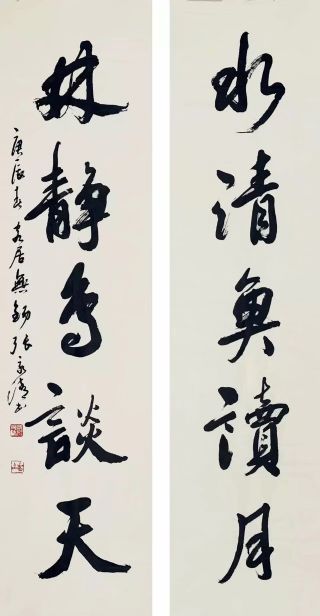 水清魚讀月
林靜鳥談天
庚辰春 客居無錫 張 書